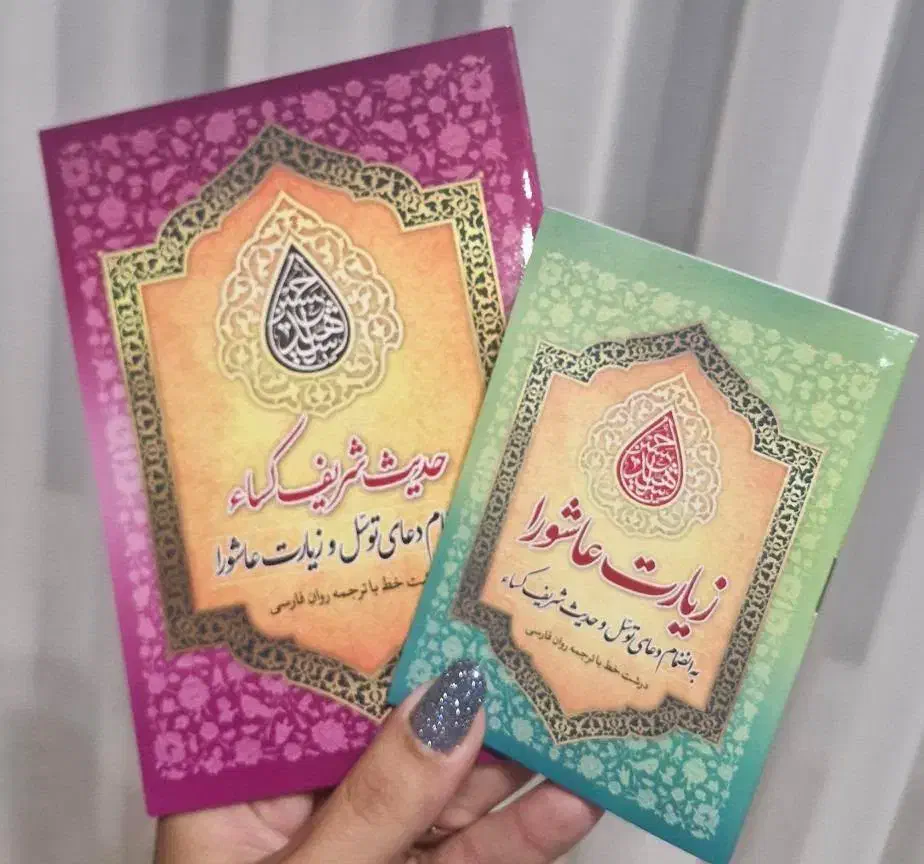 حدیث شریف کساء
دعای توسّل و زیارت عاشورا
خط با ترجمه روان فارسی
زیارت عاشورا
به انضمام دعای توسّل و حدیث شریف کساء
درشت خط با ترجمه روان فارسی